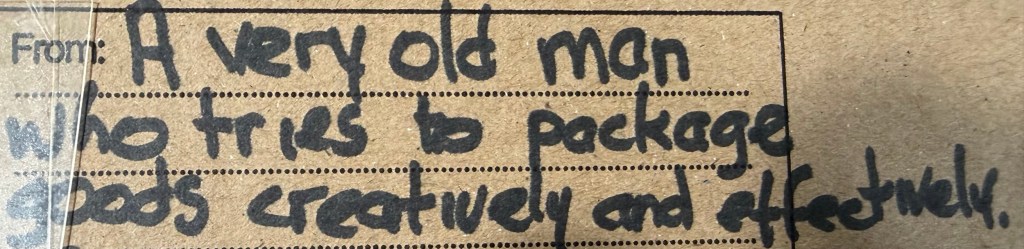 From: A very old man
who tries to package
goods creatively and effectively.